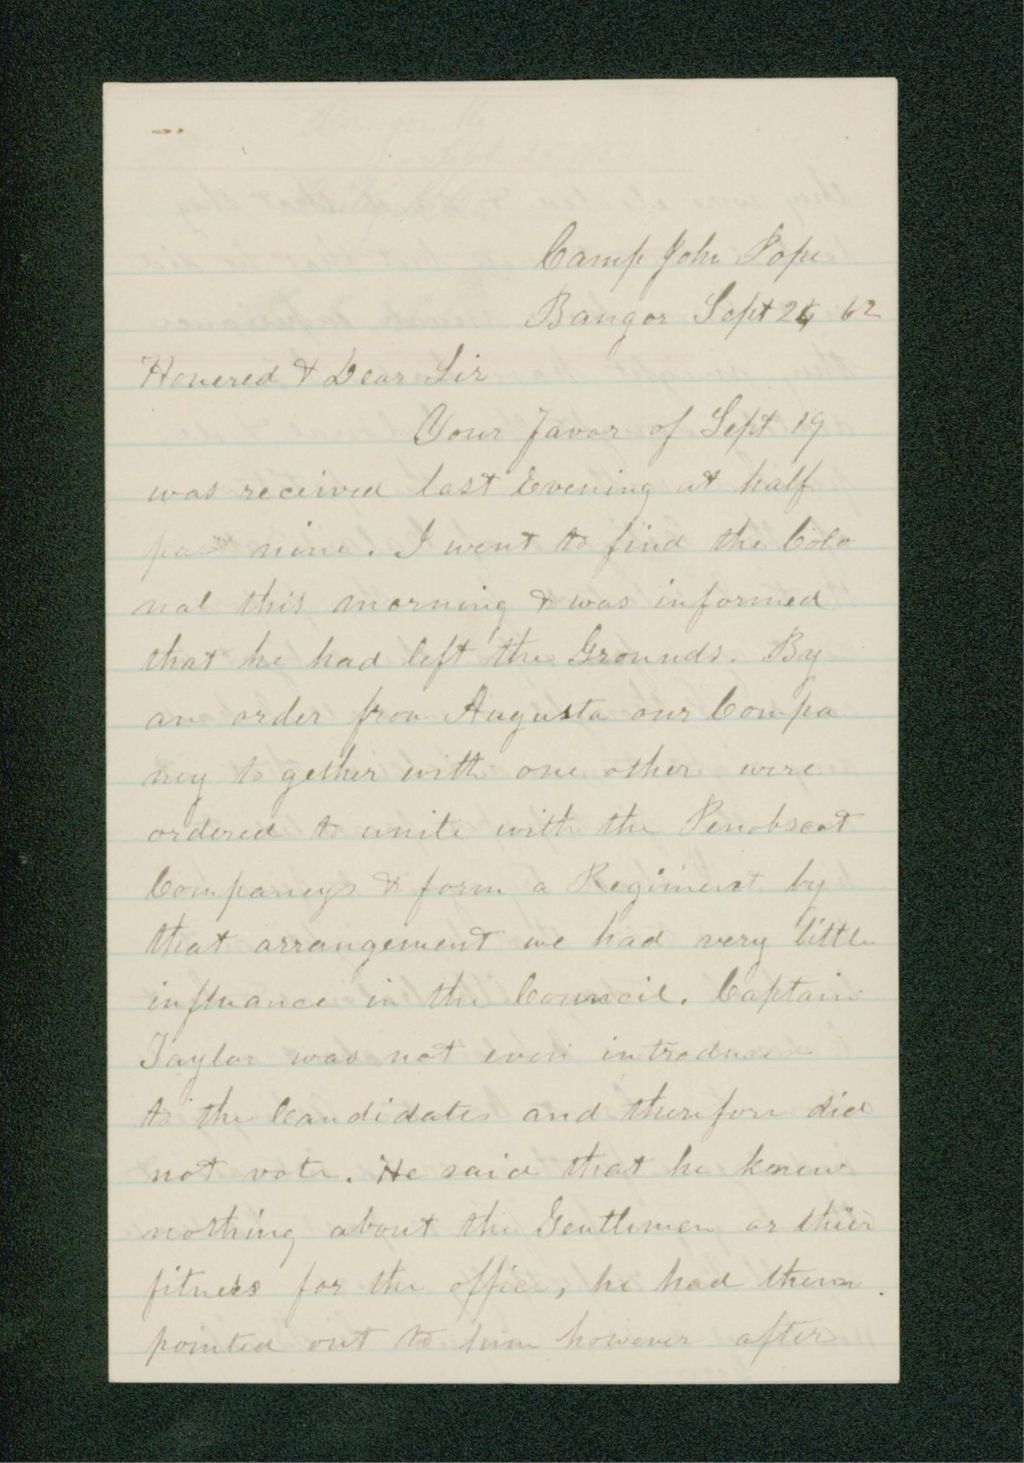 Camp John Pope
Bangor Sept 24 62
Honered & Dear Sir
Your favor of Sept 19
was received last Evening at half
past nine. I went to find the Colo
nal this morning & was informed
that he had left the Grounds. By
an order from Augusta our Compa
ney together with one other were
ordered to unite with the Penobscot
Companeys & form a Regiment by
that arrangement we had very little
influance in the Council. Captain
Taylor was not even introduced
to the Candidates and therefore did
not vote. He said that he knew
nothing about the Gentlemen or thier
fitness for the office, he had them
pointed out to him however after